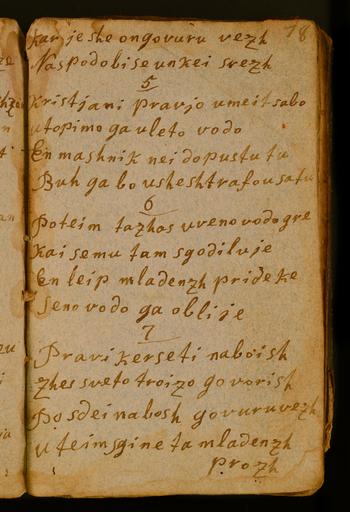 78
kar je she on govuru vezh
Naspodobise unkei srezh
5
kristjani pravjo umeit sabo
utopimo ga uleto vodo
En mashnik nei dopustu tu
Buh ga bo usheshtrafou satu
6
Poteim tazhas uveno vodo gre
kai semu tam sgodiluje
En leip mladenzh prideke
Seno vodo ga oblije
7
Pravi kerseti naboish
zhes sveto troizo govorish
Posdei nabosh govuru vezh
uteim sgine ta mladenzh
prozh